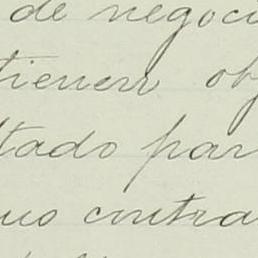 de negoci
tienen ob
ltado par
uo contra